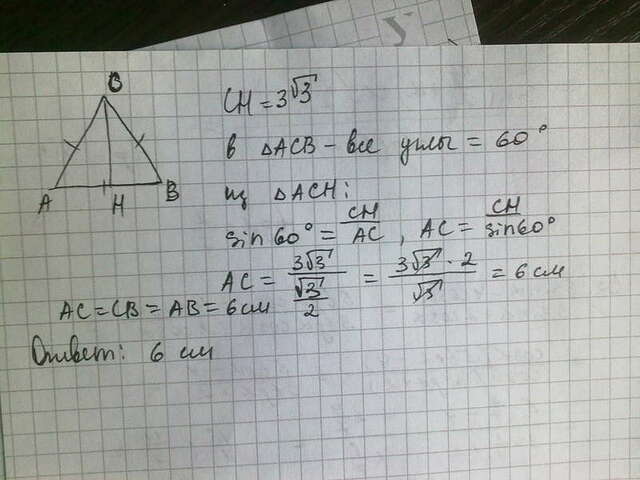 C
A H B
CH = 3√3
в △ACB – все углы = 60°
из △ACH:
sin 60° = CH/AC, AC = CH/sin60°
AC = 3√3/(√3/2) = 3√3 · 2/√3 = 6 см
AC = CB = AB = 6 см
Ответ: 6 см